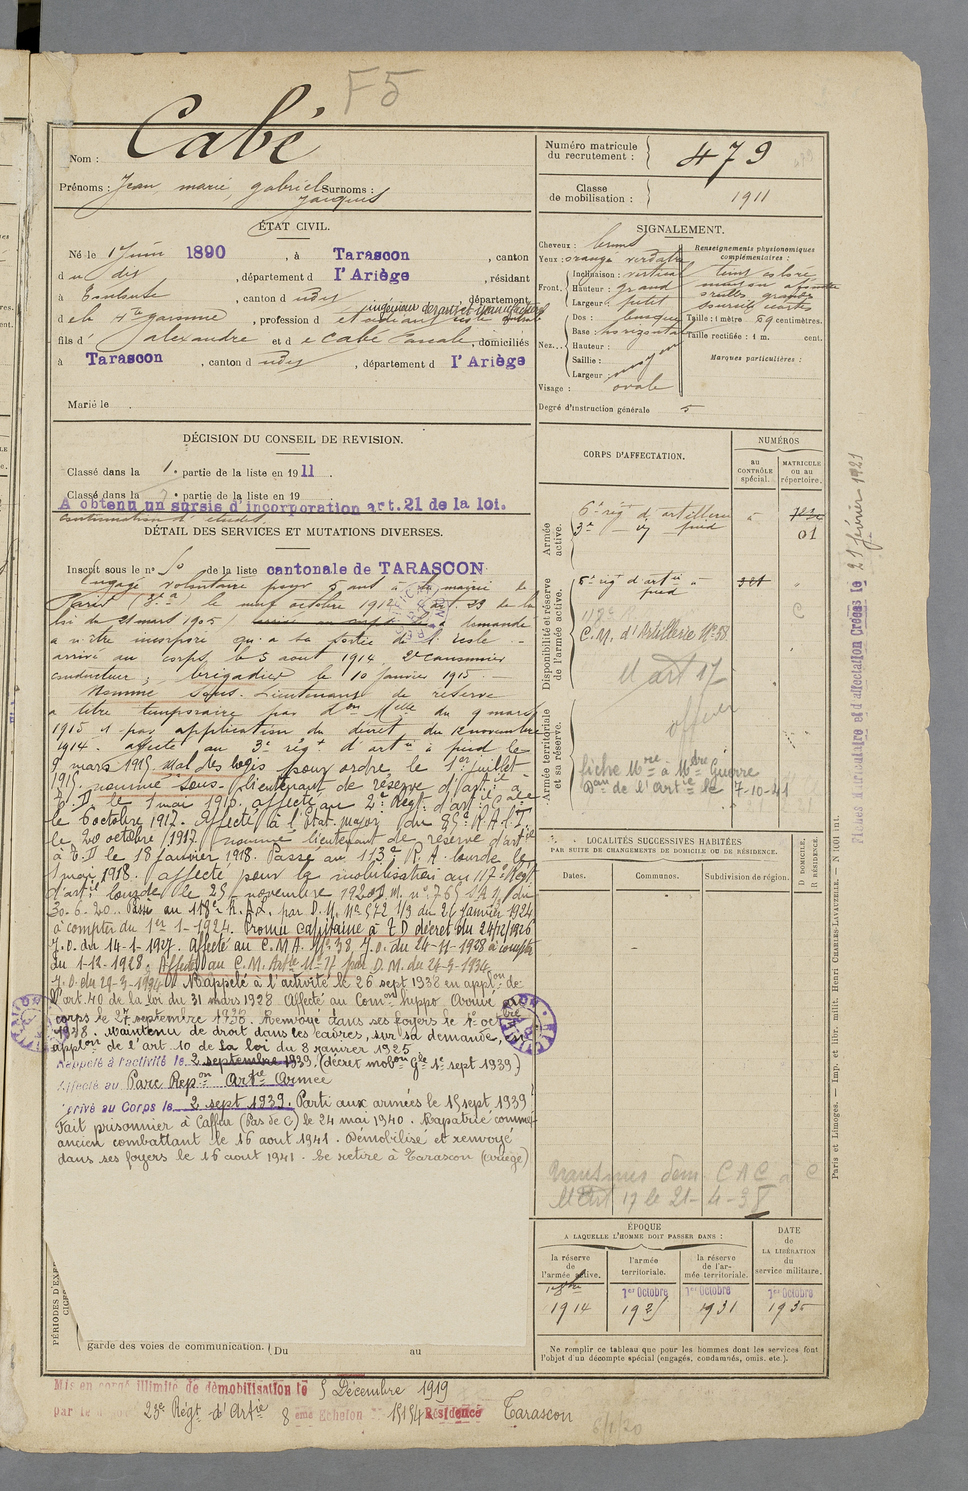 F5
Nom : Cabé
Prénoms : Jean marie, gabriel Surnoms :
Jacques
ÉTAT CIVIL.
Né le 1 Juin 1890, à Tarascon, canton
du dit, département d l'Ariège, résidant
à Toulouse, canton d udit, département
d e la Hte garonne, profession d étudiant
ingénieur des arts et manufactures
fils d' alexandre et d e Cabé Pascale, domiciliés
à Tarascon, canton d udit, département d l'Ariège
Marié le
DÉCISION DU CONSEIL DE REVISION.
Classé dans la 1e partie de la liste en 1911.
Classé dans la e partie de la liste en 19
A obtenu un sursis d'incorporation art. 21 de la loi.
continuation d'études.
DÉTAIL DES SERVICES ET MUTATIONS DIVERSES.
Inscrit sous le n° 50 de la liste cantonale de TARASCON
Engagé volontaire pour 5 ans à la mairie de
Paris (5e a) le neuf octobre 1912 art. 23 de la
loi du 21 mars 1905 a demandé
a n'être incorporé qu'à sa sortie de l'école -
arrivé au corps le 5 août 1914 2e canonnier
conducteur ; brigadier le 10 janvier 1915. -
Nommé Sous-Lieutenant de réserve
a titre temporaire par don Melle du 9 mars
1915 par application du décret du 12 novembre
1914. affecté au 3e régt d'artie à pied le
9 mars 1915 Mal des logis pour ordre le 1er juillet
1915 nommé sous-lieutenant de réserve d'artie à
T.D le 1 mai 1916. affecté au 2e Regt d'artie
le 6 octobre 1917. Affecté à l'état-major du 85e R.A.L.T.
le 20 octobre 1917 nommé lieutenant de réserve d'artie
à T.D le 18 janvier 1918. Passé au 113e R.A. lourde le
1 mai 1918. affecté pour la mobilisation au 117e Regt
d'artie lourde le 25 novembre 1920 D.M. n° 765 du
30-6-20. Passé au 118e R.A.L. par D.M. No 572 1/3 du 26 janvier 1924
à compter du 1er 1-1924. Promu capitaine à T D décret du 24/12/1926
J.O. du 14-1-1927. Affecté au C.M.A. No 38, J.O. du 24-11-1928 à compter
du 1-12-1928. Affecté au C.M. Artie No 17 par D.M. du 24-3-1934
J.O. du 29-3-1934 Rappelé à l'activité le 26 sept 1938 en applon de
l'art. 40 de la loi du 31 mars 1928 Affecté au Comon hippo Arrivé au
corps le 27 septembre 1938. Renvoyé dans ses foyers le 1er octbre
1938. Maintenu de droit dans les cadres, sur sa demande, en
applon de l'art 10 de la loi du 8 janvier 1925
Rappelé à l'activité le 2 septembre 1939. (décret mobon Gle 1er sept 1939)
Affecté au Parc Repon Artie Armée
Arrivé au Corps le 2 sept 1939. Parti aux armées le 15 sept 1939
Fait prisonnier à Caffar (Pas de C) le 24 mai 1940. Rapatrié comme
ancien combattant le 16 août 1941. Démobilisé et renvoyé
dans ses foyers le 16 août 1941. Se retire à Tarascon (ariège)
PÉRIODES D'EXER
CICES
garde des voies de communication. Du au
Mis en congé illimité de démobilisation le 5 Décembre 1919
par le 23e Régt d'Artie 8eme Echelon 15154 Résidence Tarascon
6/1/20
Numéro matricule
du recrutement : 479
Classe
de mobilisation : 1911
SIGNALEMENT.
Cheveux : bruns
Yeux : orangé verdâtre
Front. Inclinaison : vertical
Hauteur : grand
Largeur : petit
Nez. Dos : busqué
Base : horizontal
Hauteur :
Saillie : moyen
Largeur :
Visage : ovale
Renseignements physionomiques
complémentaires :
teint coloré
oreilles grandes
sourcils écartés
Taille : 1 mètre 69 centimètres.
Taille rectifiée : 1 m. cent.
Marques particulières :
Degré d'instruction générale 5
CORPS D'AFFECTATION.
NUMÉROS
au
CONTRÔLE
spécial.
MATRICULE
ou au
répertoire.
Armée
active.
6e régt d'artillerie à
3e — dy — pied 01
Disponibilité et réserve
de l'armée active.
6e régt d'artie à
pied
C.M. d'Artillerie No 38
C
M art 17
Armée territoriale
et sa réserve.
officier
fiche Mre à Mtre Guerre
Don de l'Artie le 7-10-41
Fiches matriculaire et d'affectation Créées le 21 février 1921
LOCALITÉS SUCCESSIVES HABITÉES
PAR SUITE DE CHANGEMENTS DE DOMICILE OU DE RÉSIDENCE.
Dates. Communes. Subdivision de région. D DOMICILE, R RÉSIDENCE.
Transmis dem. CAC à C
M Art 17 le 21-4-38
ÉPOQUE
A LAQUELLE L'HOMME DOIT PASSER DANS :
DATE
de
LA LIBÉRATION
du
service militaire.
la réserve
de
l'armée active.
l'armée
territoriale.
la réserve
de l'ar-
mée territoriale.
1er Octobre 1er Octobre 1er Octobre
1914 1925 1931 1935
Ne remplir ce tableau que pour les hommes dont les services font
l'objet d'un décompte spécial (engagés, condamnés, omis. etc.).
Paris et Limoges. — Imp. et libr. milit. Henri CHARLES-LAVAUZELLE. — N 1001 int.